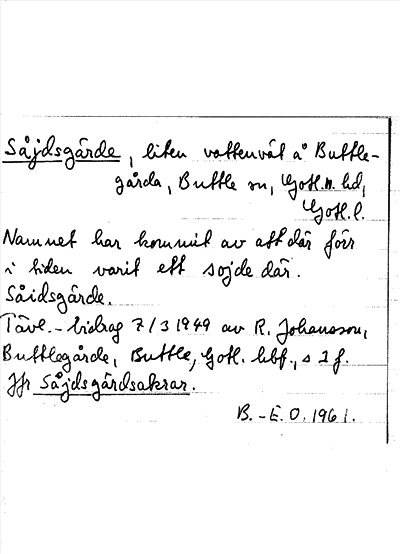 Såjdsgårde, liten vattenvät å Buttle-
gårda, Buttle sn, Gotl. n. hd,
Gotl. l.
Namnet har kommit av att där förr
i tiden varit ett sojde där.
Såidsgårde.
Tävl.-bidrag 7/3 1949 av R. Johansson,
Buttlegårde, Buttle, Gotl. hbf., s 2 f.
Jfr Såjdsgårdsakrar.
B.-E. O. 1961.